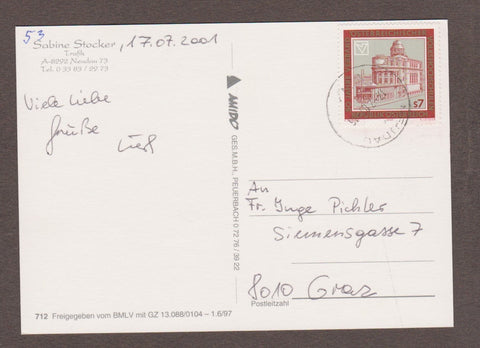 53
Sabine Stocker, 17.07.2001
Trafik
A-8292 Neudau 73
Tel. 0 33 83 / 22 73
Viele liebe
Grüße
AMIDO GES.M.B.H., PEUERBACH 0 72 76 / 39 22
S7
An
Fr. Inge Pichler
Siemensgasse 7
8010 Graz
Postleitzahl
712 Freigegeben vom BMLV mit GZ 13.088/0104 – 1.6/97